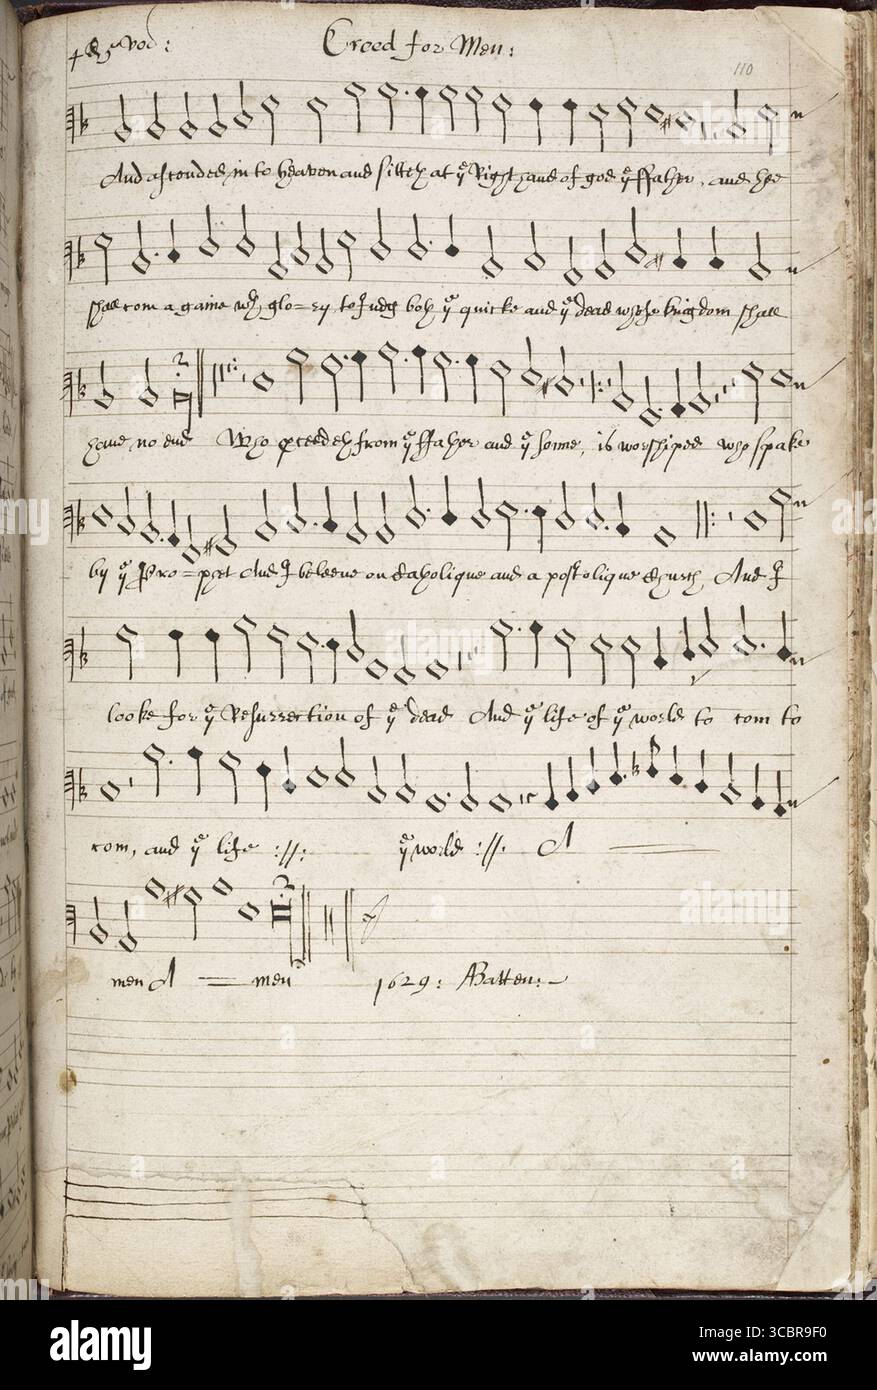 4 Voc: Creed for Men:
110
And ascended in to heaven and sitteth at yᵉ Right hand of god yᵉ ffather, and hee
shall com a gaine wᵗʰ glo=ry to Judg both yᵉ quicke and yᵉ dead whose kingdom shall
haue no end Who pceedeth from yᵉ ffather and yᵉ sonne, is worshiped who spake
by yᵉ Pro=phet And I beleeue on Catholique and a postolique Church And I
looke for yᵉ Resurrection of yᵉ dead And yᵉ life of yᵉ world to com to
com, and yᵉ life ://: yᵉ world ://: A
men A men 1629: ABatten:
alamy
Image ID: 3CBR9F0
www.alamy.com